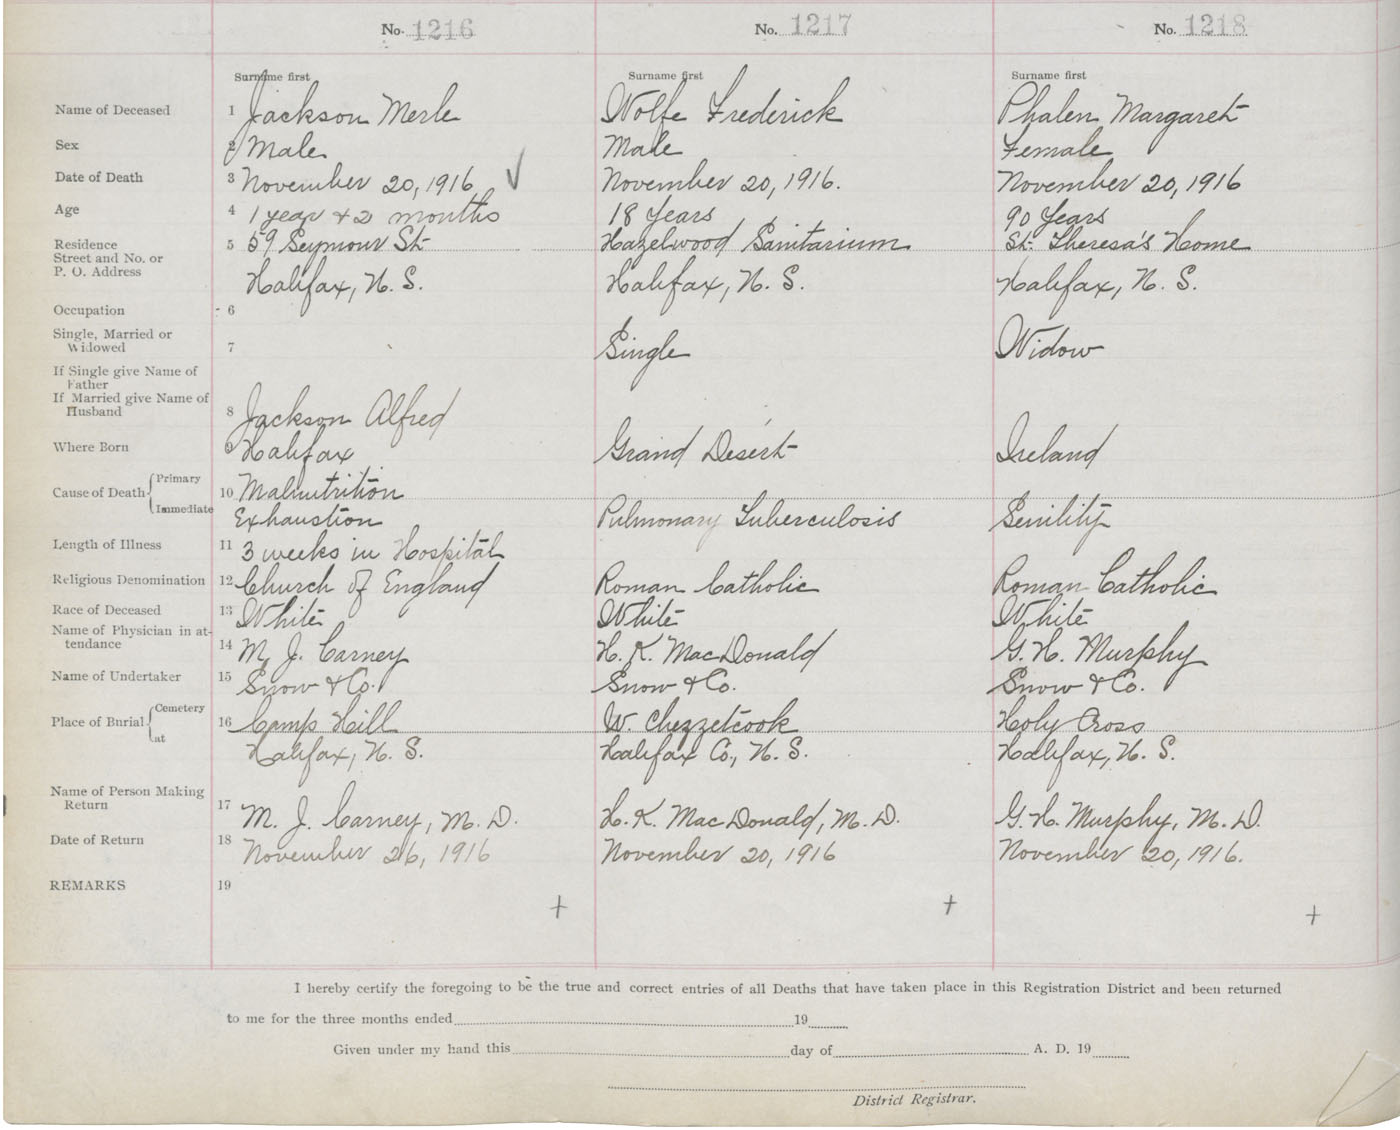 No. 1216 No. 1217 No. 1218
Surname first Surname first Surname first
Name of Deceased 1 Jackson Merle Wolfe Frederick Phalen Margaret
Sex 2 Male Male Female
Date of Death 3 November 20, 1916 November 20, 1916. November 20, 1916
Age 4 1 year & 2 months 18 Years 90 Years
Residence 5 59 Seymour St. Hazelwood Sanitarium St. Theresa's Home
Street and No. or
P. O. Address Halifax, N. S. Halifax, N. S. Halifax, N. S.
Occupation 6
Single, Married or
Widowed 7 Single Widow
If Single give Name of
Father
If Married give Name of
Husband 8 Jackson Alfred
Where Born 9 Halifax Grand Desert Ireland
Cause of Death Primary 10 Malnutrition
Immediate Exhaustion Pulmonary Tuberculosis Senility
Length of Illness 11 3 weeks in Hospital
Religious Denomination 12 Church of England Roman Catholic Roman Catholic
Race of Deceased 13 White White White
Name of Physician in at-
tendance 14 M. J. Carney H. K. MacDonald G. H. Murphy
Name of Undertaker 15 Snow & Co. Snow & Co. Snow & Co.
Place of Burial Cemetery 16 Camp Hill W. Chezzetcook Holy Cross
at Halifax, N. S. Halifax Co., N. S. Halifax, N. S.
Name of Person Making
Return 17 M. J. Carney, M. D. H. K. MacDonald, M. D. G. H. Murphy, M. D.
Date of Return 18 November 26, 1916 November 20, 1916 November 20, 1916.
REMARKS 19
I hereby certify the foregoing to be the true and correct entries of all Deaths that have taken place in this Registration District and been returned
to me for the three months ended 19
Given under my hand this day of A. D. 19
District Registrar.